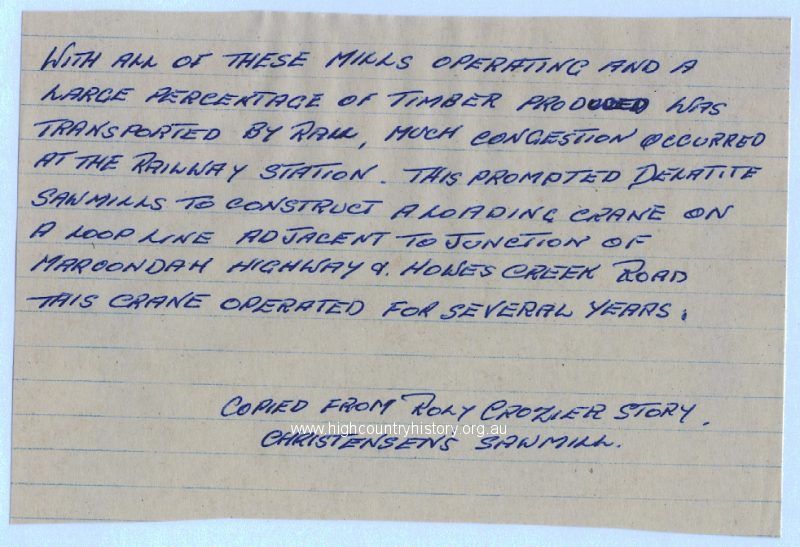 WITH ALL OF THESE MILLS OPERATING AND A
LARGE PERCENTAGE OF TIMBER PRODUCED WAS
TRANSPORTED BY RAIL, MUCH CONGESTION OCCURRED
AT THE RAILWAY STATION. THIS PROMPTED DELATITE
SAWMILLS TO CONSTRUCT A LOADING CRANE ON
A LOOP LINE ADJACENT TO JUNCTION OF
MAROONDAH HIGHWAY & HOWES CREEK ROAD
THIS CRANE OPERATED FOR SEVERAL YEARS.
COPIED FROM ROLY CROZIER STORY.
www.highcountryhistory.org.au
CHRISTENSENS SAWMILL.